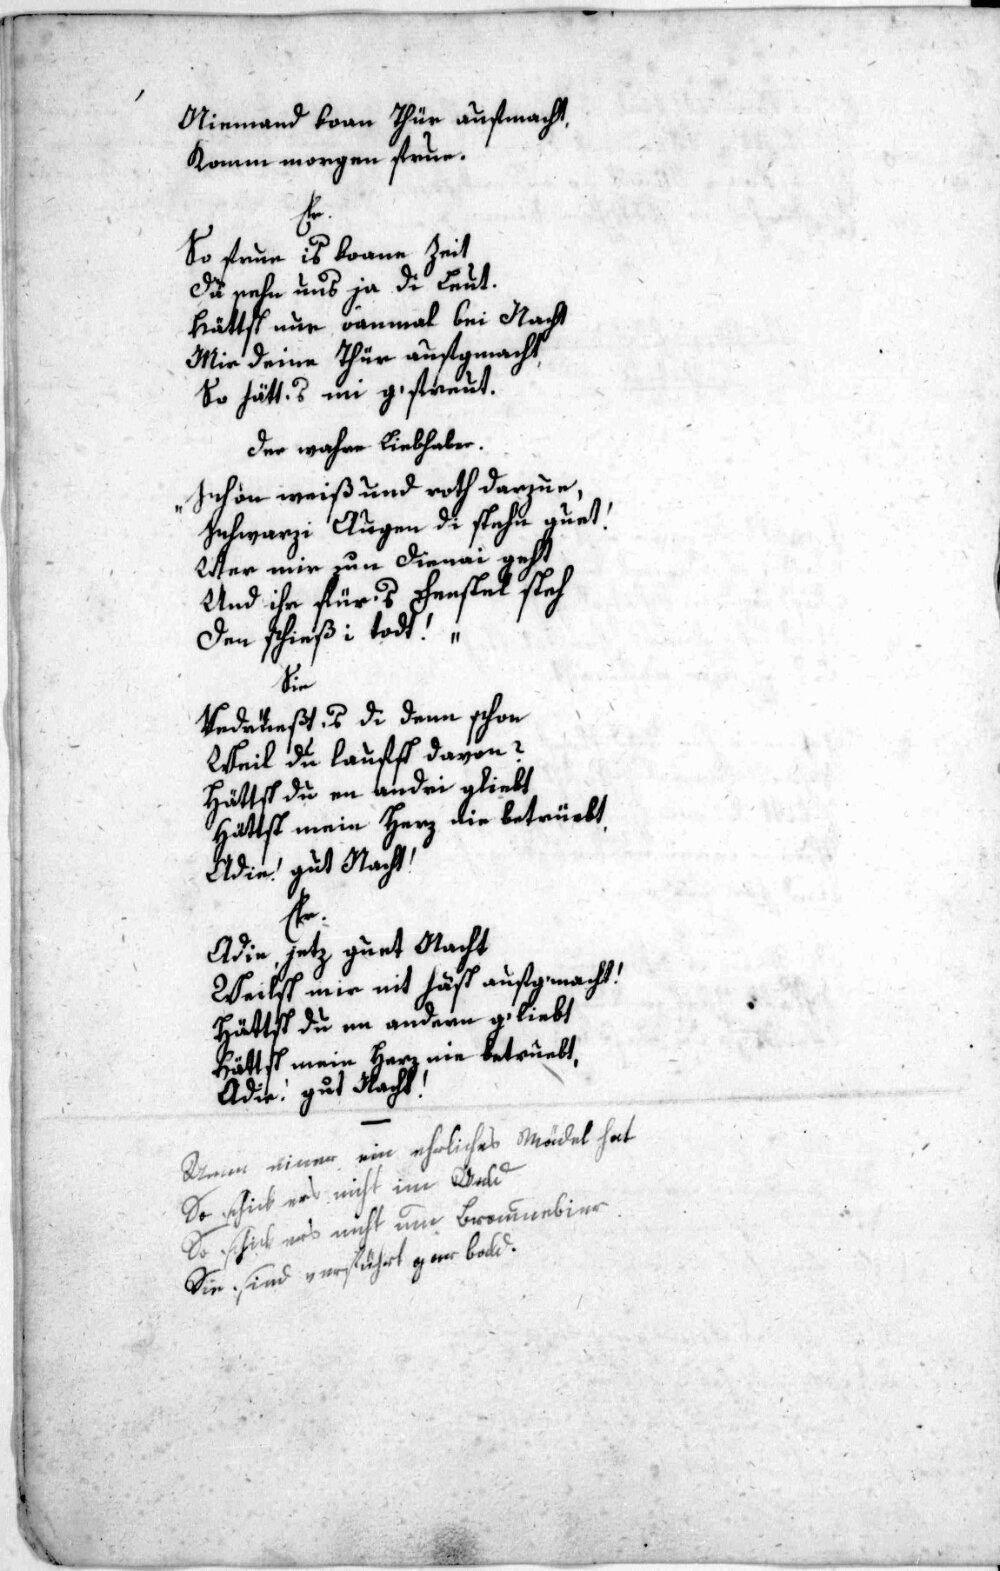 Niemand koan Thür aufmacht,
Komm morgen frue.
Er.
So frue is koane Zeit
Da sehn uns ja di Leut.
Hättst nur oanmal bei Nacht
Mir deine Thür aufgmacht,
So hätt's mi g'freut.
Der wahre Liebhaber.
"Schön weiß und roth darzue,
Schwarzi Augen di stehn guet!
Wer mir zun Dienai geht
Und ihr für's Fenstel steh
Den schieß i todt!"
Sie
Vedrüeßt's di denn schon
Weil du laufst davon?
Hättst du en andri gliebt
Hättst mein Herz nie betrüebt,
Adie! gut Nacht!
Er.
Adie, jetz guet Nacht
Weilst mir nit häst aufg'macht!
Hättst du en andern g'liebt
Hättst mein Herz nie betruebt,
Adie! gut Nacht!
Wenn einer ein ehrliches Mädel hat
So schick ers nicht im Wald
So schick ers nicht um Brommebier
Sie sind verführt gar bald.